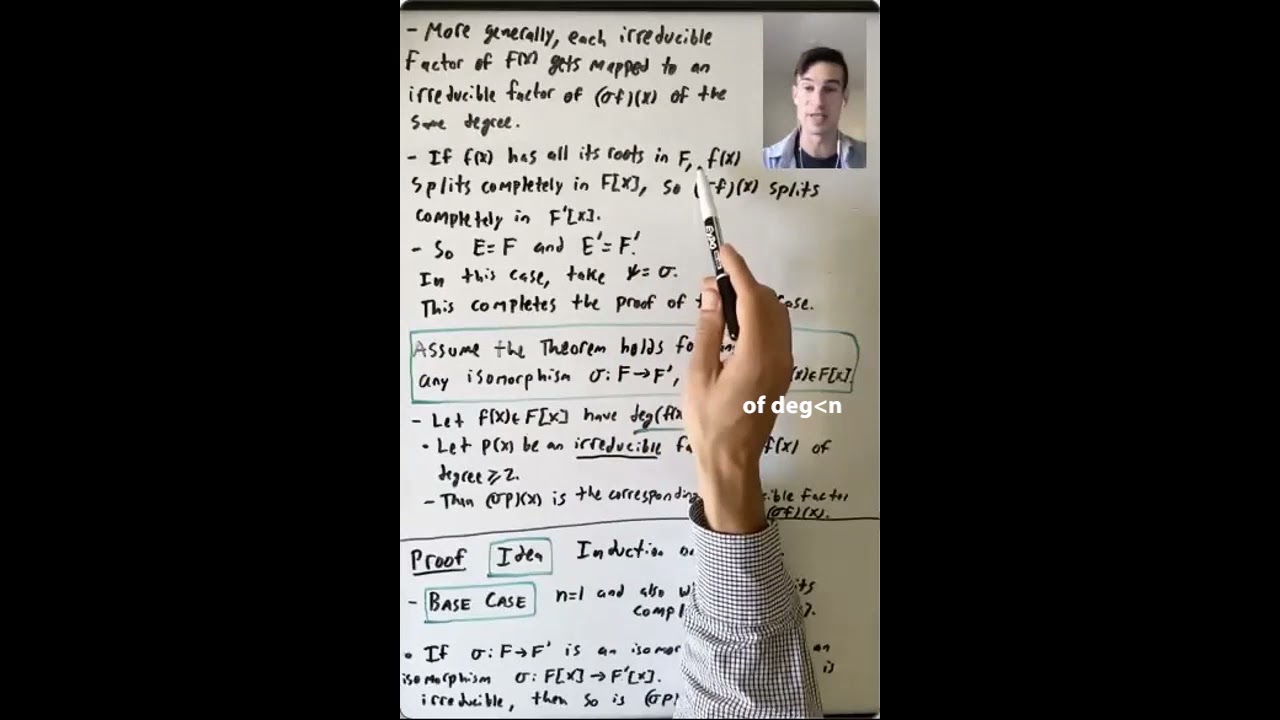 - More generally, each irreducible
factor of f(x) gets mapped to an
irreducible factor of (σf)(x) of the
same degree.
- If f(x) has all its roots in F, f(x)
splits completely in F[x], so (σf)(x) splits
completely in F'[x].
- So E=F and E'=F'.
In this case, take ψ=σ.
This completes the proof of case.
Assume the Theorem holds for
any isomorphism σ:F→F', (x)∈F[x].
of deg<n
- Let f(x)∈F[x] have deg(f(x
• Let p(x) be an irreducible f(x) of
degree ≥2.
- Then (σp)(x) is the corresponding factor
(σf)(x).
Proof Idea Induction
- BASE CASE n=1 and also
• If σ:F→F' is an
isomorphism σ:F[x]→F'[x]. is
irreducible, then so is (σp)